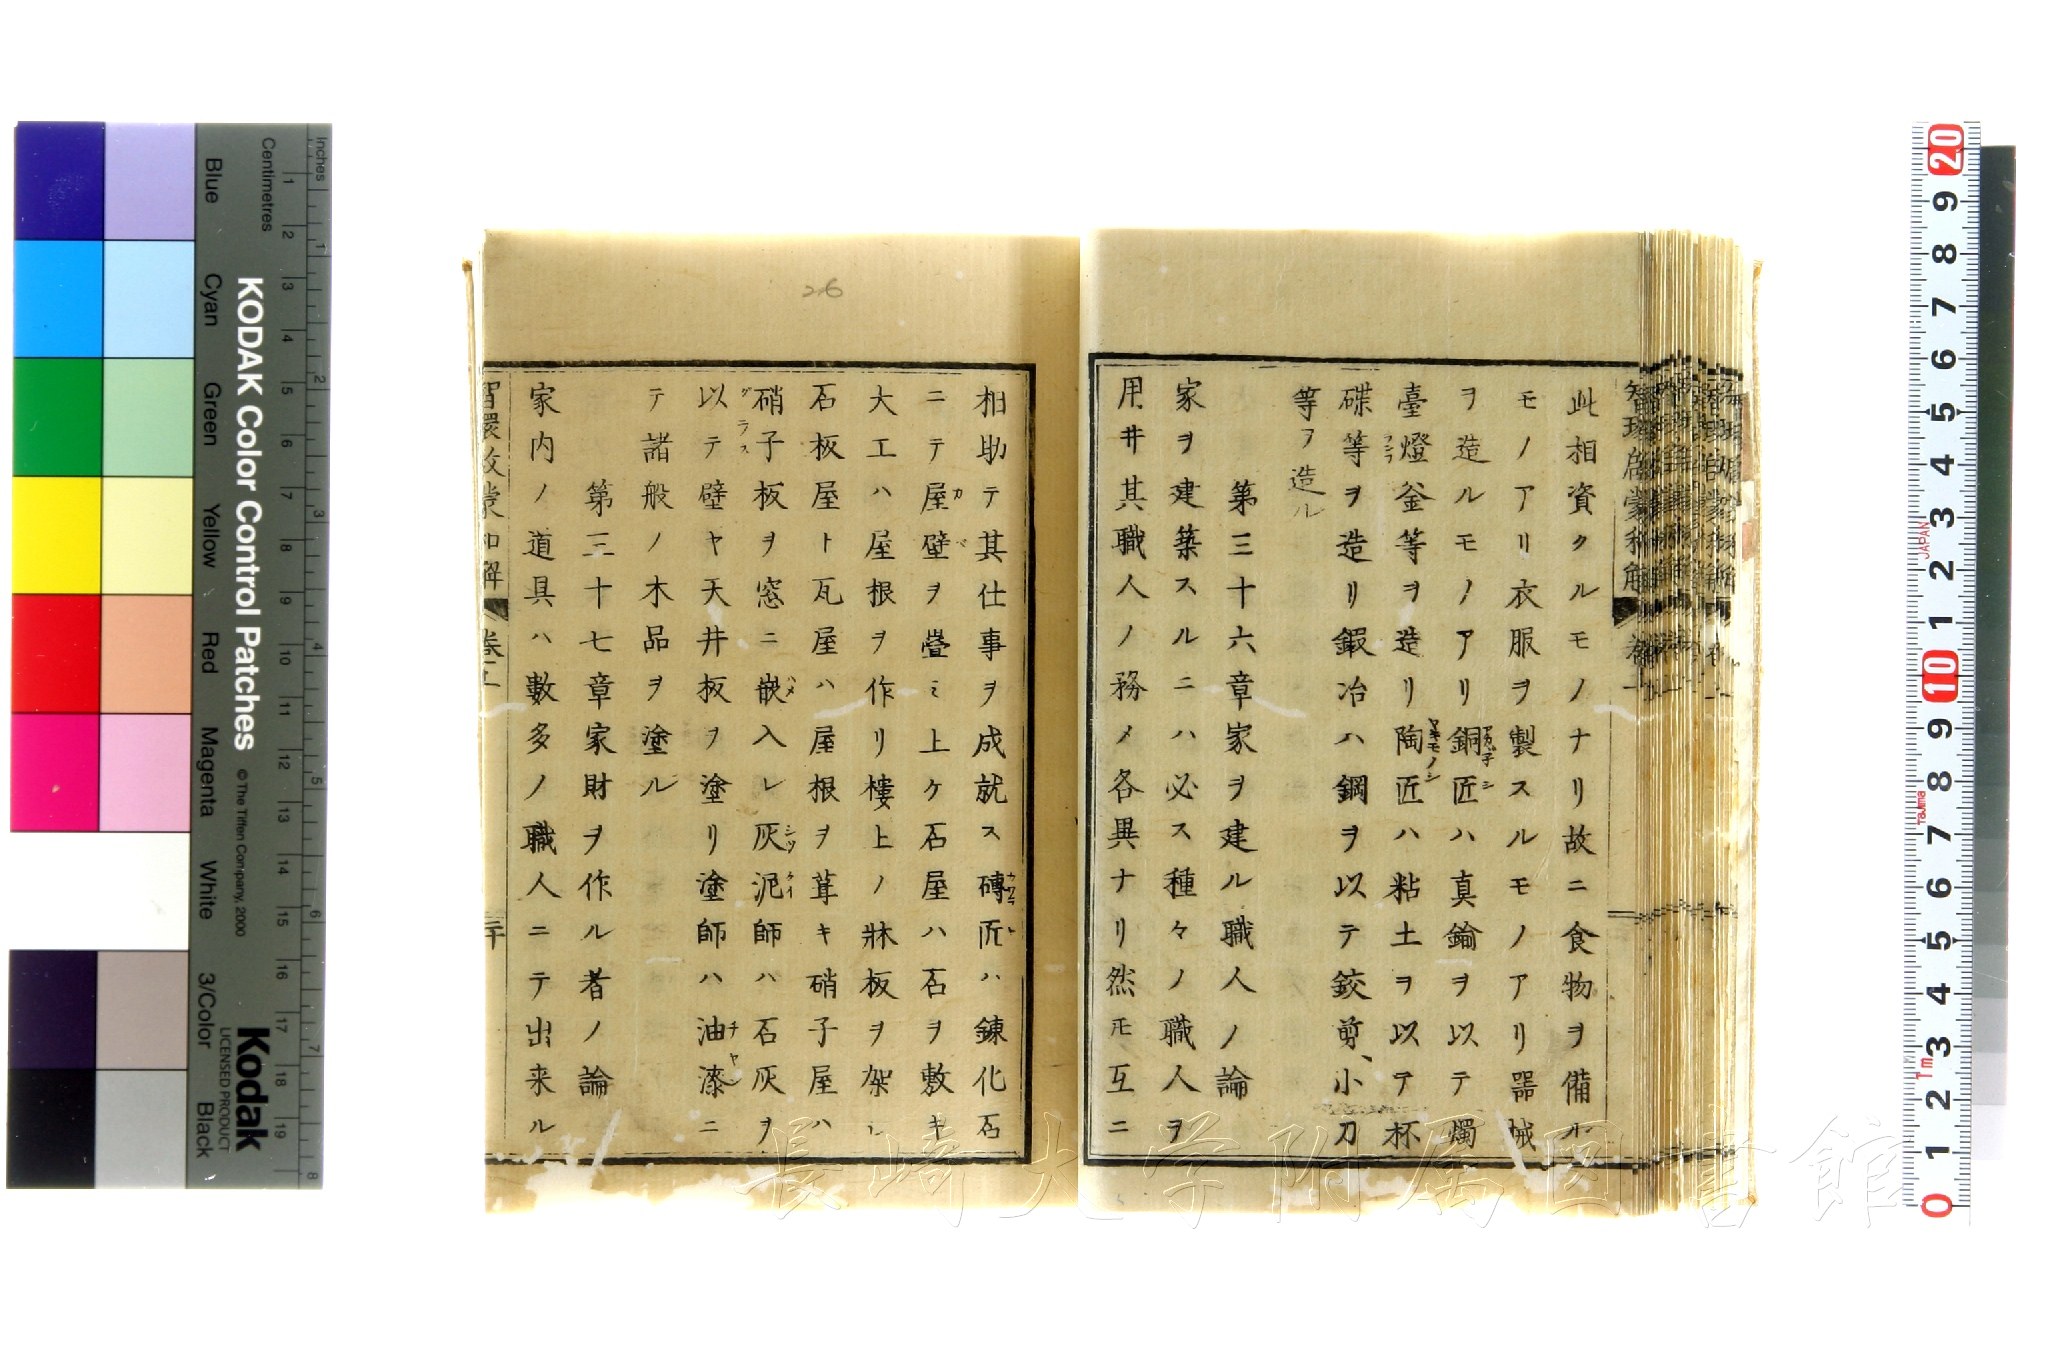 此相資クルモノナリ故ニ食物ヲ備ル
モノアリ衣服ヲ製スルモノアリ器械
ヲ造ルモノアリ銅匠ハ真鍮ヲ以テ燭
臺燈釜等ヲ造リ陶匠ハ粘土ヲ以テ杯
碟等ヲ造リ鍜冶ハ鋼ヲ以テ鉸剪、小刀
等ヲ造ル
第三十六章家ヲ建ル職人ノ論
家ヲ建築スルニハ必ス種々ノ職人ヲ
用井其職人ノ務メ各異ナリ然モ互ニ
相助テ其仕事ヲ成就ス磚匠ハ錬化石
ニテ屋壁ヲ疊ミ上ケ石屋ハ石ヲ敷キ
大工ハ屋根ヲ作リ樓上ノ牀板ヲ架ヒ
石板屋ト瓦屋ハ屋根ヲ葺キ硝子屋ハ
硝子板ヲ窓ニ嵌入レ灰泥師ハ石灰ヲ
以テ壁ヤ天井板ヲ塗リ塗師ハ油漆ニ
テ諸般ノ木品ヲ塗ル
第三十七章家財ヲ作ル者ノ論
家内ノ道具ハ數多ノ職人ニテ出来ル
26
長崎大学附属図書館
KODAK Color Control Patches
© The Tiffen Company, 2000
Kodak
LICENSED PRODUCT
Inches
Centimetres
Blue
Cyan
Green
Yellow
Red
Magenta
White
3/Color
Black
JAPAN
Tajima